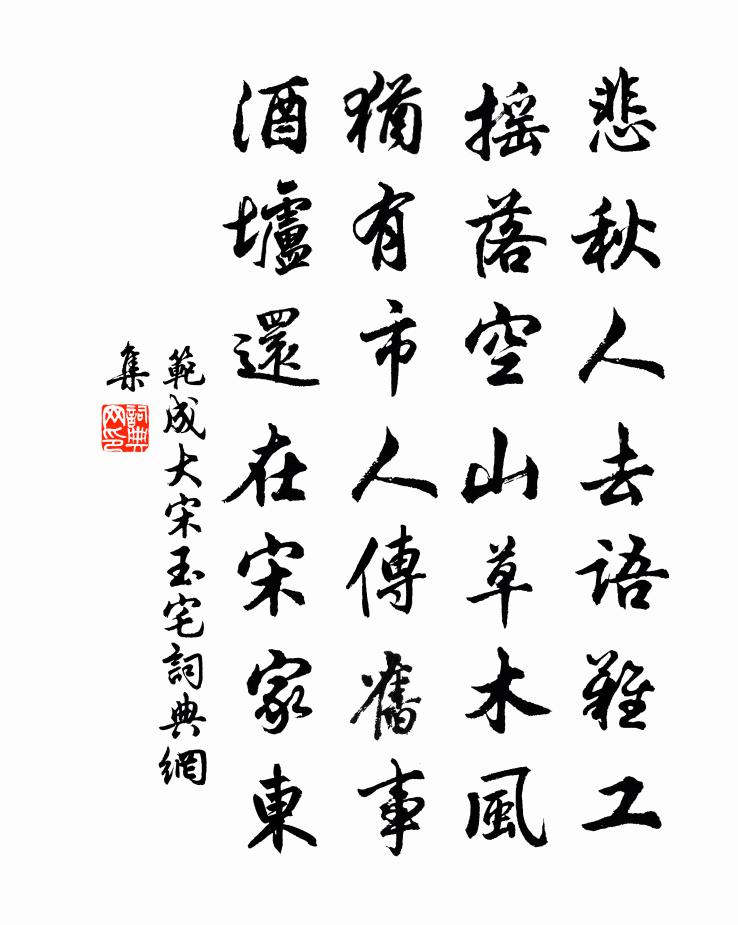 悲秋人去語難工
搖落空山草木風
猶有市人傳舊事
酒壚還在宋家東
範成大宋玉宅詞典網
集
詞典網印